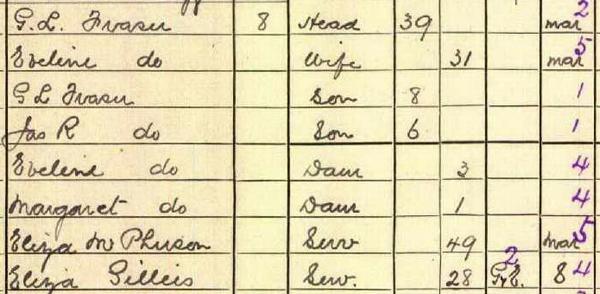 G. L. Fraser 8 Head 39 mar 2
Eveline do Wife 31 mar 5
G L Fraser Son 8 1
Jas R do Son 6 1
Eveline do Daur 3 4
Margaret do Daur 1 4
Eliza McPherson Serv 49 mar 5
Eliza Gilleis Serv. 28 2 8 4